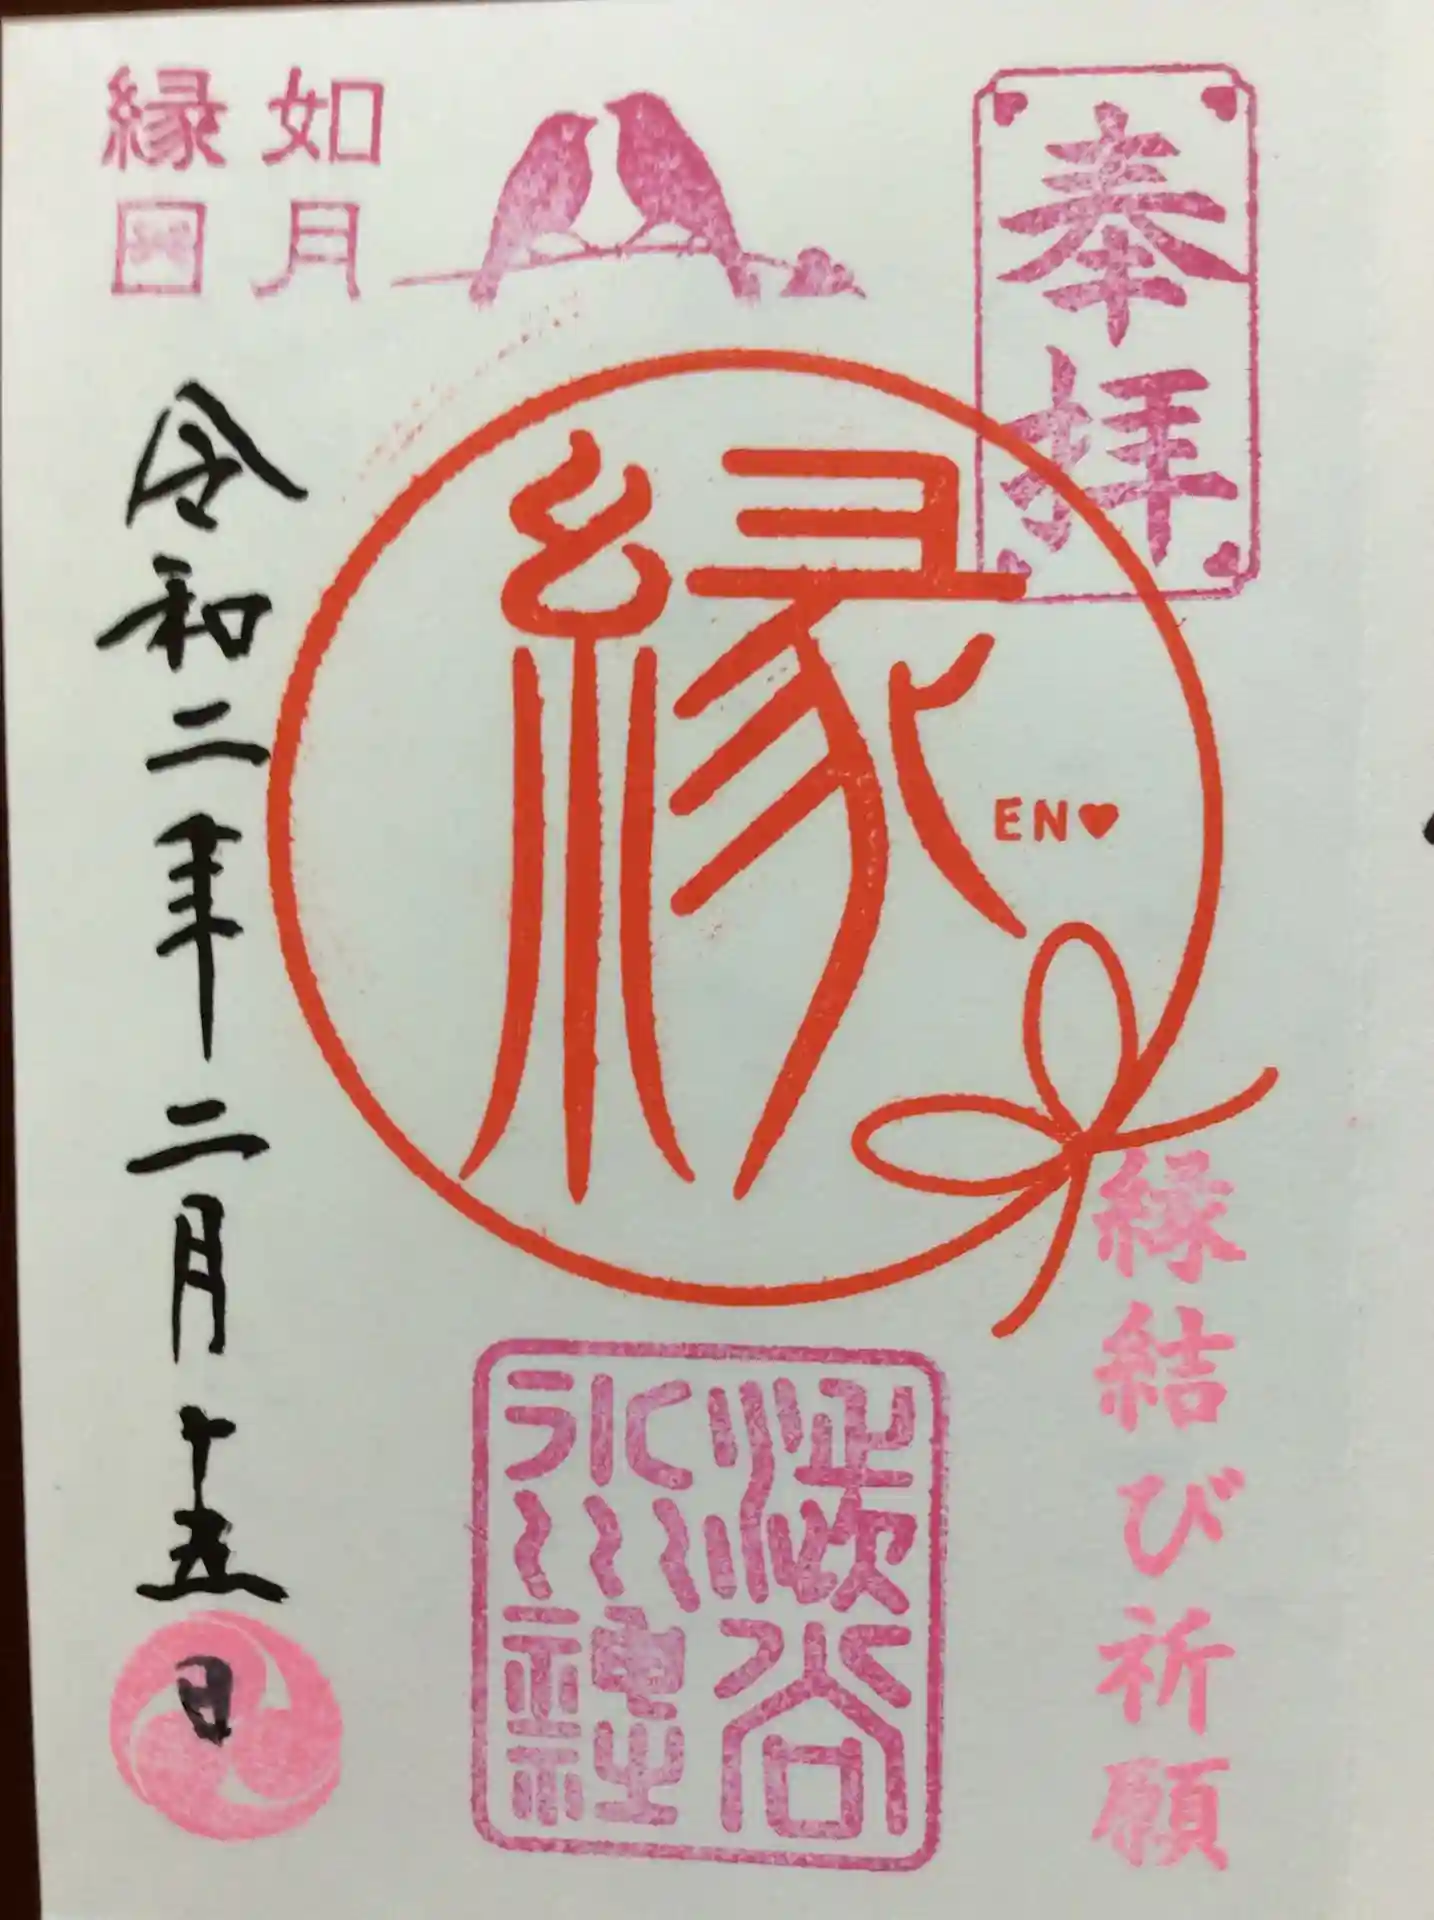 奉拝
縁結び祈願
縁
EN♥
澁谷
氷川
神社
如月
縁日
令和二年二月十五日